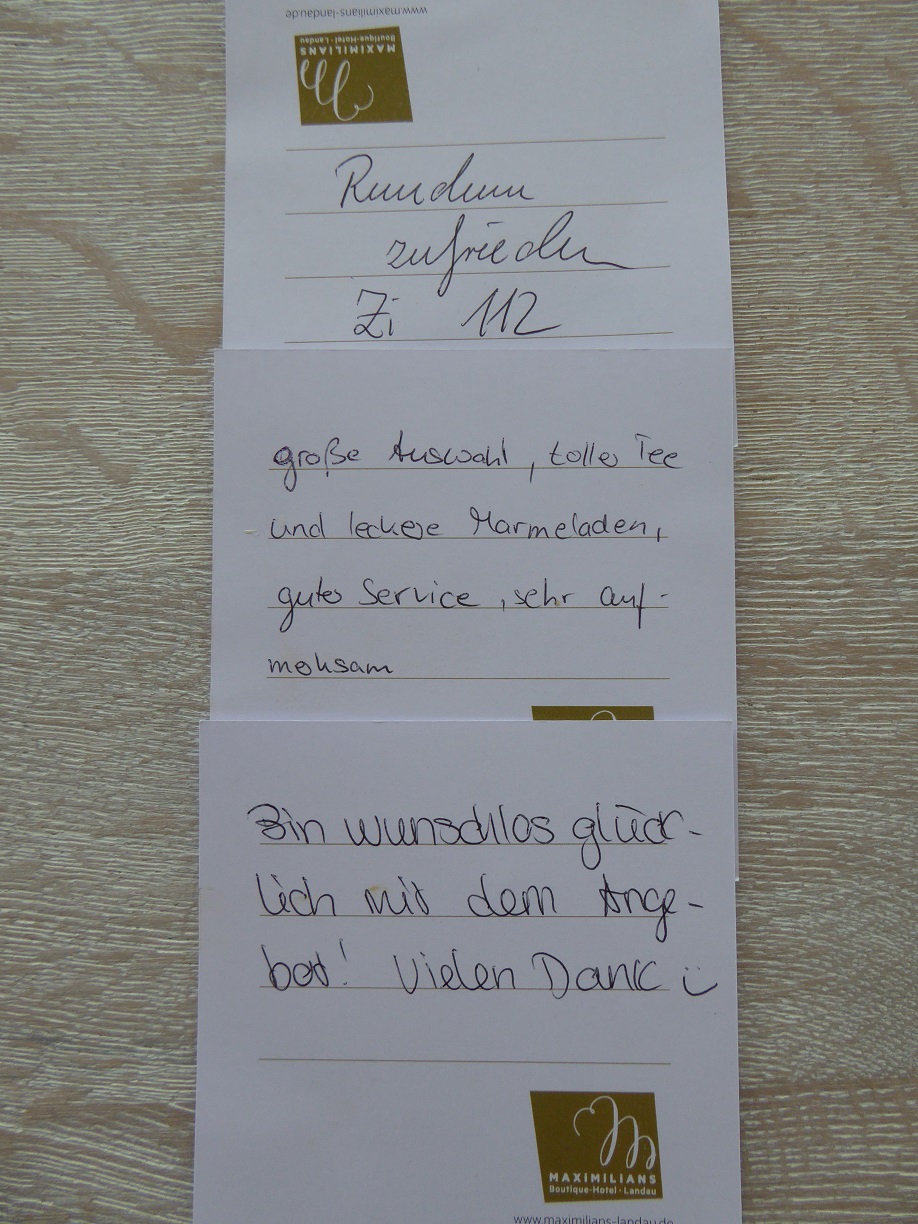 www.maximilians-landau.de
MAXIMILIANS
Boutique-Hotel · Landau
Rundum
zufrieden
Zi 112
große Auswahl, tolle Tee
und leckere Marmeladen,
gutes Service, sehr auf-
merksam
Bin wunschlos glück-
lich mit dem Ange-
bot! Vielen Dank ü
MAXIMILIANS
Boutique-Hotel · Landau
www.maximilians-landau.de